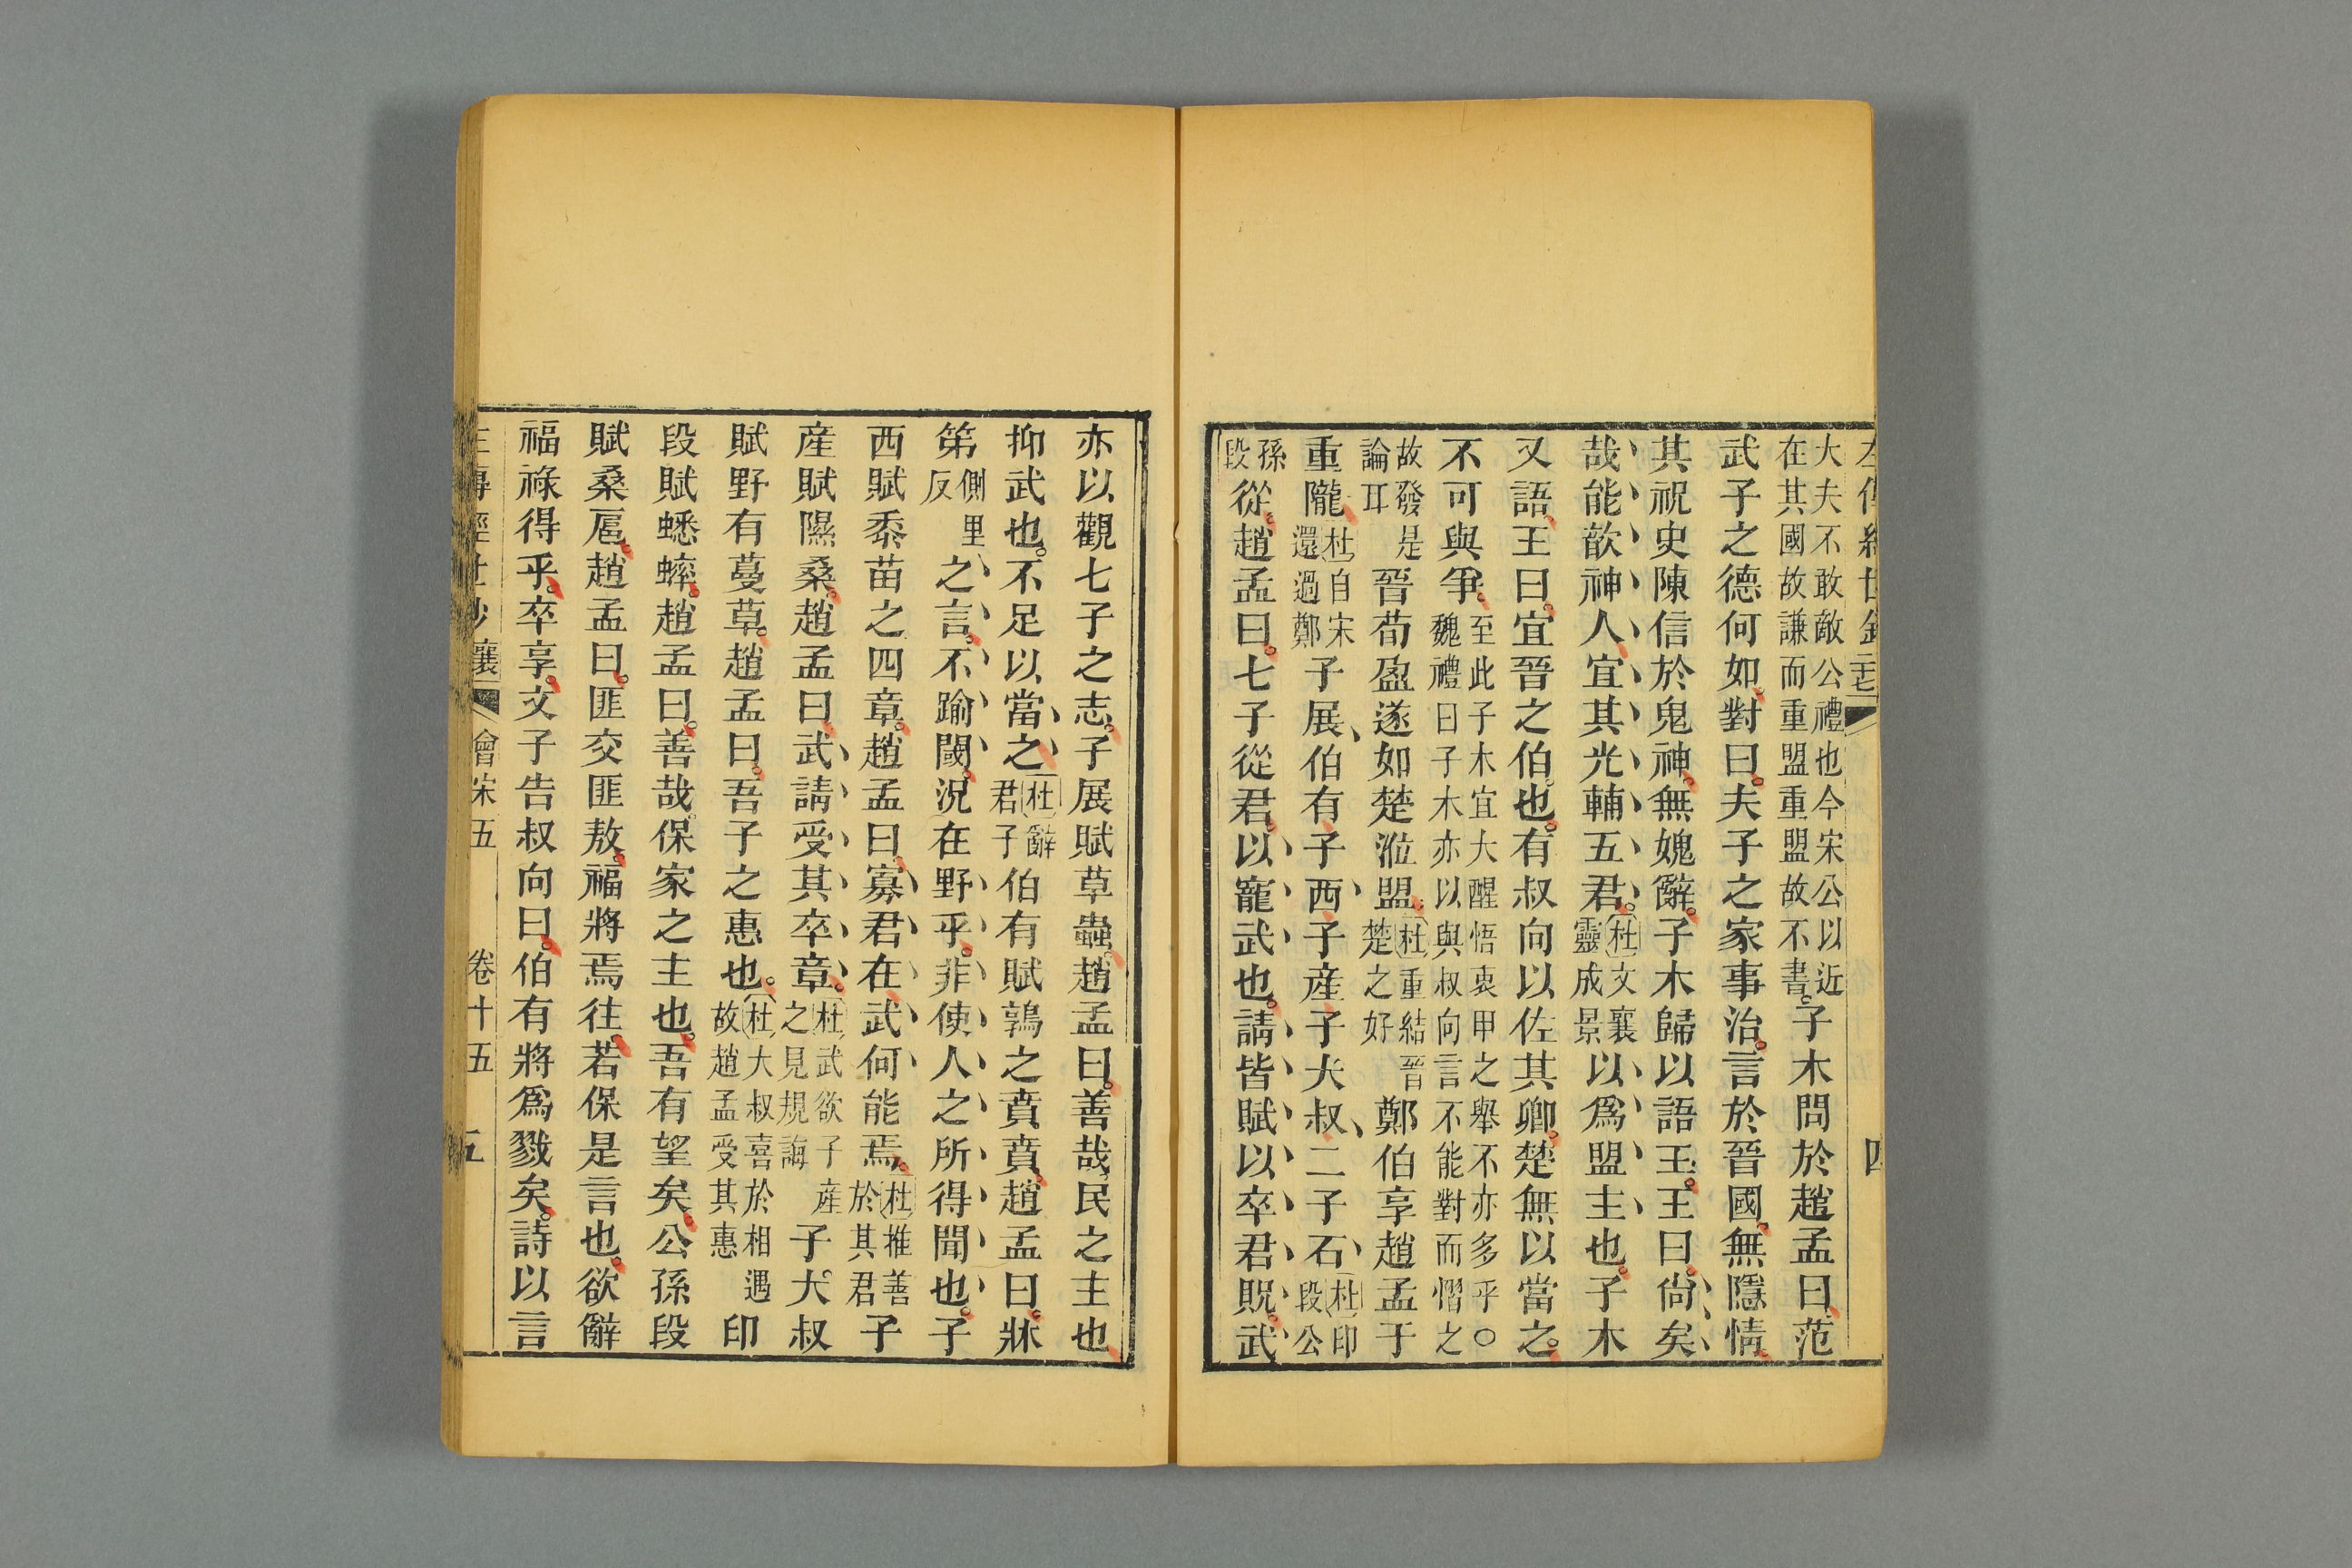 左傳經世鈔 四
大夫不敢敵公禮也今宋公以近在其國故謙而重盟重盟故不書。子木問於趙孟曰、范
武子之德何如。對曰。夫子之家事治。言於晉國。無隱情。
其祝史陳信於鬼神。無媿辭。子木歸以語王。王曰。尙矣
哉能歆神人、宜其光輔五君。杜文襄靈成景以爲盟主也。子木
又語王曰。宜晉之伯也。有叔向以佐其卿。楚無以當之。
不可與爭。至此子木宜大醒悟衷甲之舉不亦多乎○魏禮曰子木亦以與叔向言不能對而慴之
故發是論耳晉荀盈遂如楚涖盟。杜重結晉楚之好鄭伯享趙孟于
重隴杜自宋還過鄭子展、伯有子西、子産子大叔、二子石、杜印段公
孫段從。趙孟曰。七子從君。以寵武也。請皆賦以卒君貺。武
亦以觀七子之志。子展賦草蟲。趙孟曰。善哉、民之主也
抑武也。不足以當之、杜辭君子伯有賦鶉之賁賁。趙孟曰。牀
笫側里反之言。不踰閾。況在野乎。非使人之所得聞也。子
西賦黍苗之四章。趙孟曰。寡君在武何能焉。杜推善於其君子
産賦隰桑。趙孟曰。武請受其卒章。杜武欲子産之見規誨子大叔
賦野有蔓草。趙孟曰。吾子之惠也。杜大叔喜於相遇故趙孟受其惠印
段賦蟋蟀。趙孟曰。善哉。保家之主也。吾有望矣。公孫段
賦桑扈。趙孟曰。匪交匪敖。福將焉往。若保是言也。欲辭
福祿得乎。卒享。文子告叔向曰。伯有將爲戮矣。詩以言
左傳經世鈔 襄 會宋五 卷十五 五